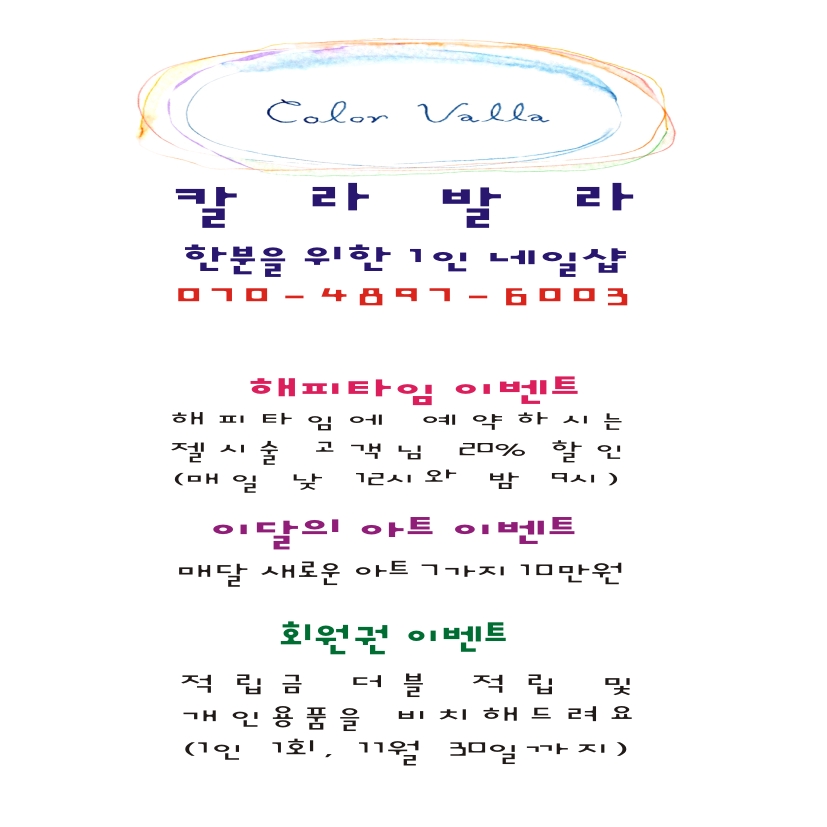 Color Valla
칼 라 발 라
한분을 위한 1인 네일샵
070-4897-6003
해피타임 이벤트
해피타임에 예약하시는
젤시술 고객님 20% 할인
(매일 낮 12시와 밤 9시)
이달의 아트 이벤트
매달 새로운 아트 7가지 10만원
회원권 이벤트
적립금 더블 적립 및
개인용품을 비치해드려요
(1인 1회, 11월 30일까지)